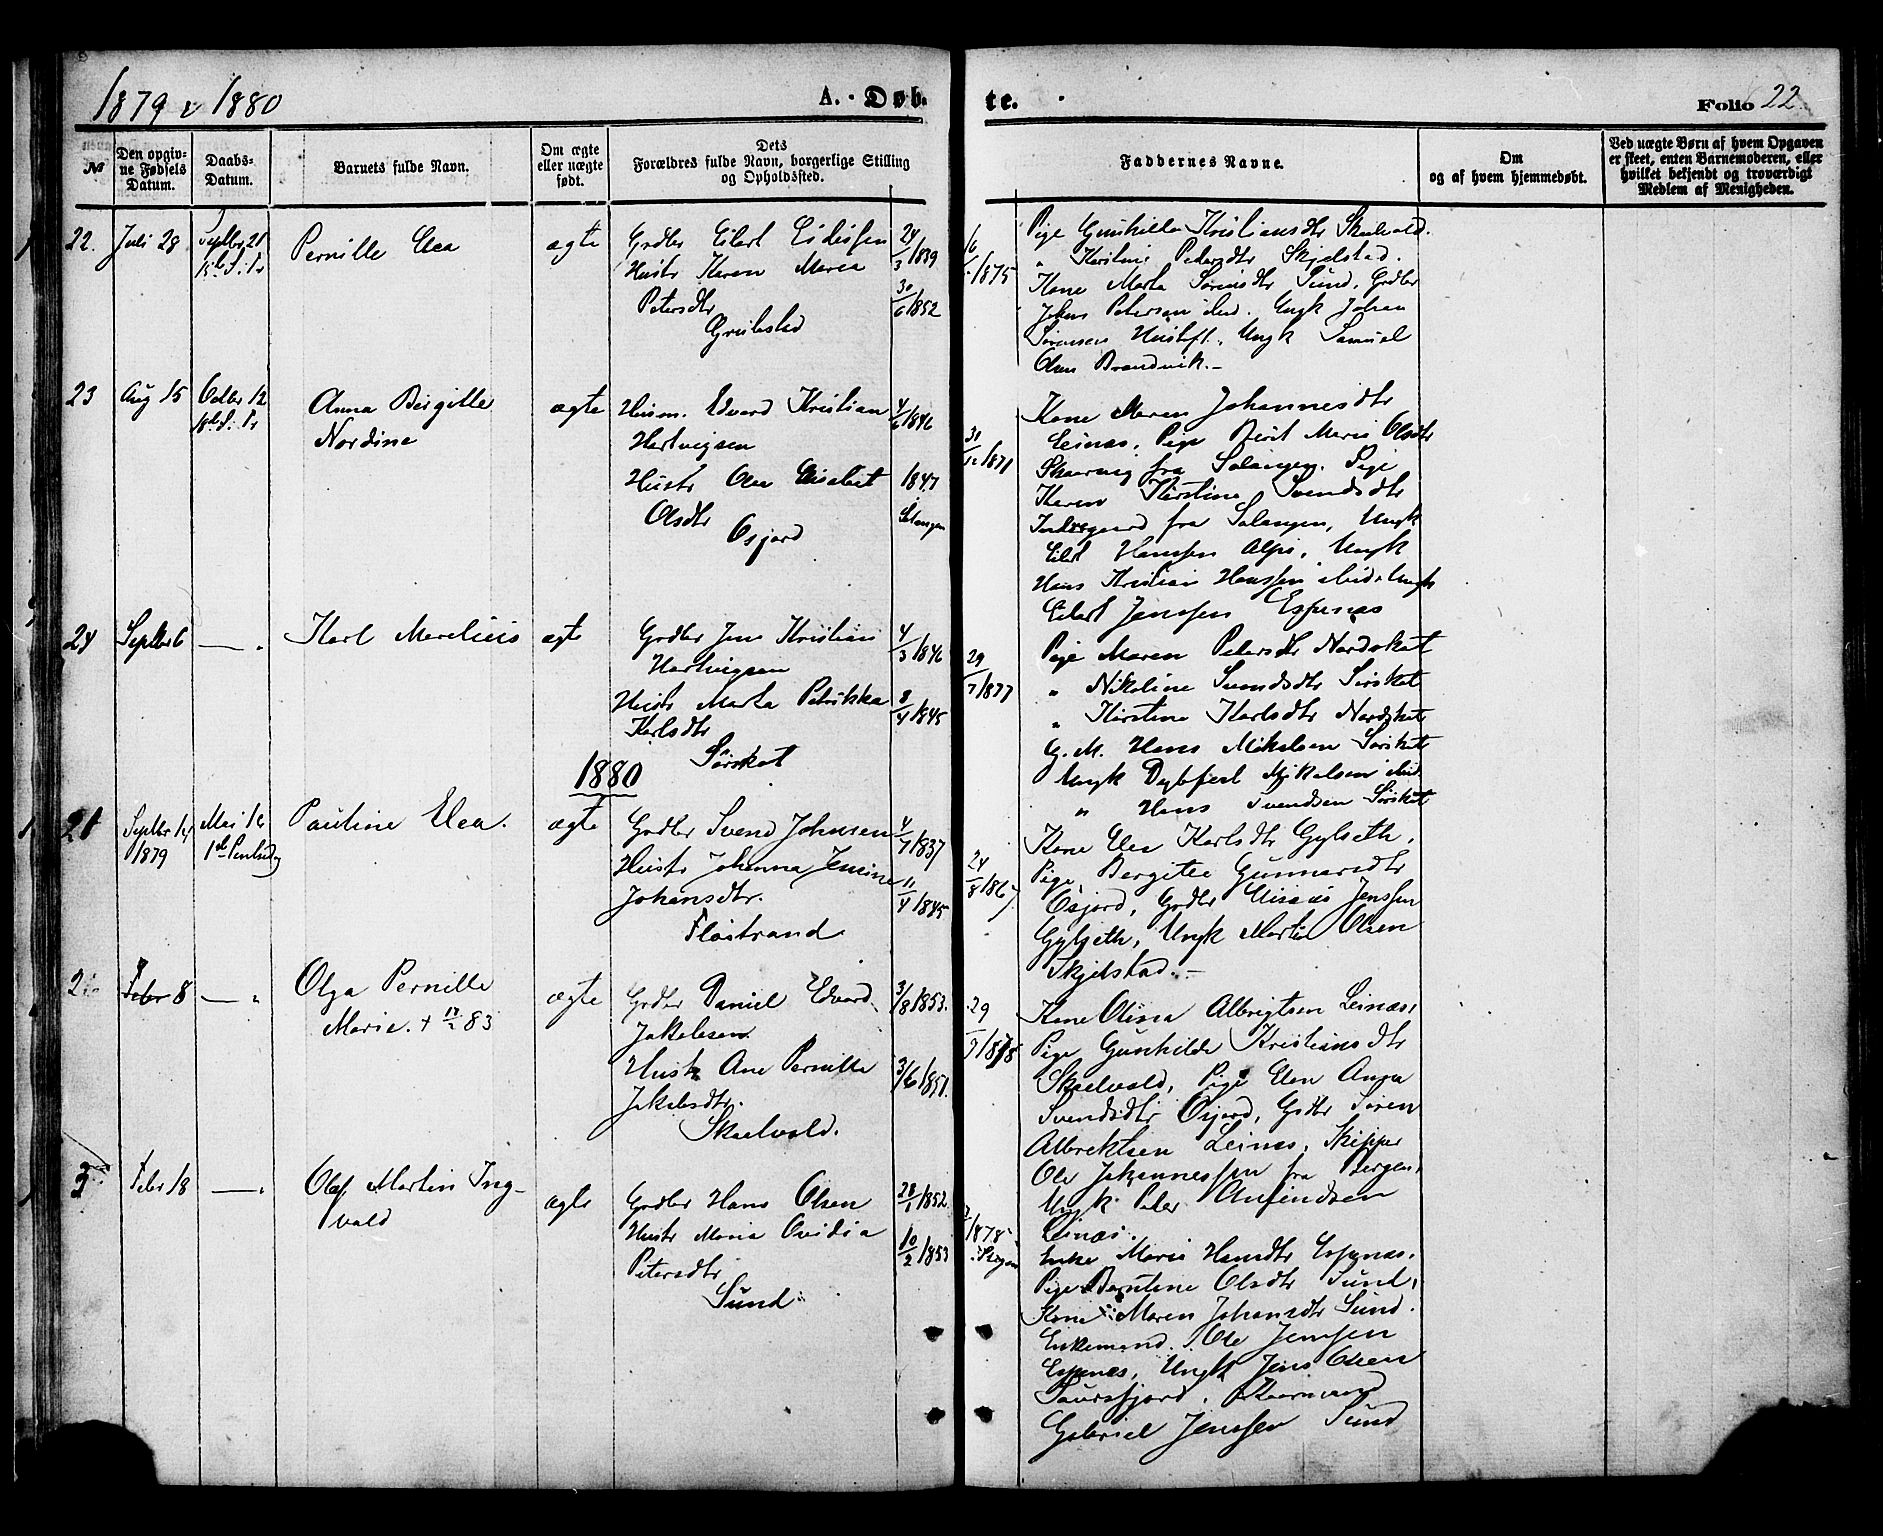 1879 & 1880
A. Døb-
te.
Folio 22
№
Den opgiv-
ne Fødsels
Datum.
Daabs-
Datum.
Barnets fulde Navn.
Om ægte
eller uægte
født.
Dets
Forældres fulde Navn, borgerlige Stilling
og Opholdssted.
Faddernes Navne.
Om
og af hvem hjemmedøbt.
Ved uægte Børn af hvem Opgaven
er skeet, enten Barnemoderen, eller
hvilket bekjendt og troværdigt
Medlem af Menigheden.
22. Juli 28 Septbr 21
Pernille Elea
ægte
Grdbr Eilert Eidissen 24/3 1839
Hustr Karen Maria
Petersdtr 30/6 1852
1875
Pige Gunhilda Kristiansdtr Skalvold.
" Kirstine Petersdtr Skjelstad.
Kone Marta Sørensdtr Sund, Grdbr
Johns Petersen ibid. Ungk Johan
Sørensen, Ungk Samuel
Olsen Brandvik.-
23 Aug 15 Octbr 12
Anna Birgitte
Nordine
ægte
Husm. Edvard Kristian 4/6 1846
Hartvigsen
Hustr Olea Elisabet 1847
Olsdtr Salangen
Osjord
30/12 1871
Kone Maren Johannesdtr
Leinæs, Pige Berit Maria Olsdtr
fra Salangen. Pige
Karen Kirstine Svendsdtr
fra Salangen, Ungk
Eilert Hanssen Alpi, Ungk
Hans Kristian Hanssen ibid. Ungk
Eilert Jenssen Espenæs
24 Septbr 6 — "
Karl Marelius
ægte
Grdbr Jens Kristian 4/3 1846
Hartvigsen
Hustr Marta Petrikka 8/4 1845
Karlsdtr
Sørskot
29/7 1877
Pige Maren Petersdtr Nordskot
" Nikoline Svendsdtr Sørskot
" Kirstine Karlsdtr Nordskot
G. M. Hans Mikelsen Sørskot
Ungk Dybfest Mikelsen ibid.
" Hans Svendsen Sørskot
1880
Septbr 14
1879
Mai 16
1ste Pintsedg
Pauline Elea.
ægte
Grdbr Svend Johnsen 4/7 1837
Hustr Johanna Jensine 11/4 1845
Johansdtr.
Fløstrand
24/8 1867
Kone Karlsdtr Gylseth,
Pige Bergitte Gunnarsdtr
Osjord, Grdbr Jenssen
Gylseth, Ungk Martin Olsen
Skjelstad.-
2 Febr 8 — "
Olga Pernille
Marie. + 83
ægte
Grdbr Daniel Edvard 3/8 1853.
Jakobsen
Hustr Ane Pernille 3/6 1851.
Jakobsdtr.
Skaelvold.
29
Kone Olina Albrigtsen Leinæs,
Pige Gunhilde Kristiansdtr
Skaelvold, Pige Elen Anna
Svendsdtr Osjord, Grdbr Søren
Albrektsen Leinæs, Skipper
Ole Johannessen fra Bergen,
Ungk Peder Anfindsen
Leinæs.
3 Febr 18 — "
Olaf Martin Ing-
vald
ægte
Grdbr Hans Olsen 28/1 1852
Hustr Maria Ovidia 10/2 1853
Petersdtr
Sund
1878
Enke Maria Hansdtr Espenæs,
Pige Berntine Olsdtr Sund,
Kone Maren Johansdtr Sund.
Enkemand Ole Jenssen
Espenæs, Ungk Jens Olsen
Saursfjord,
Gabriel Jenssen Sund